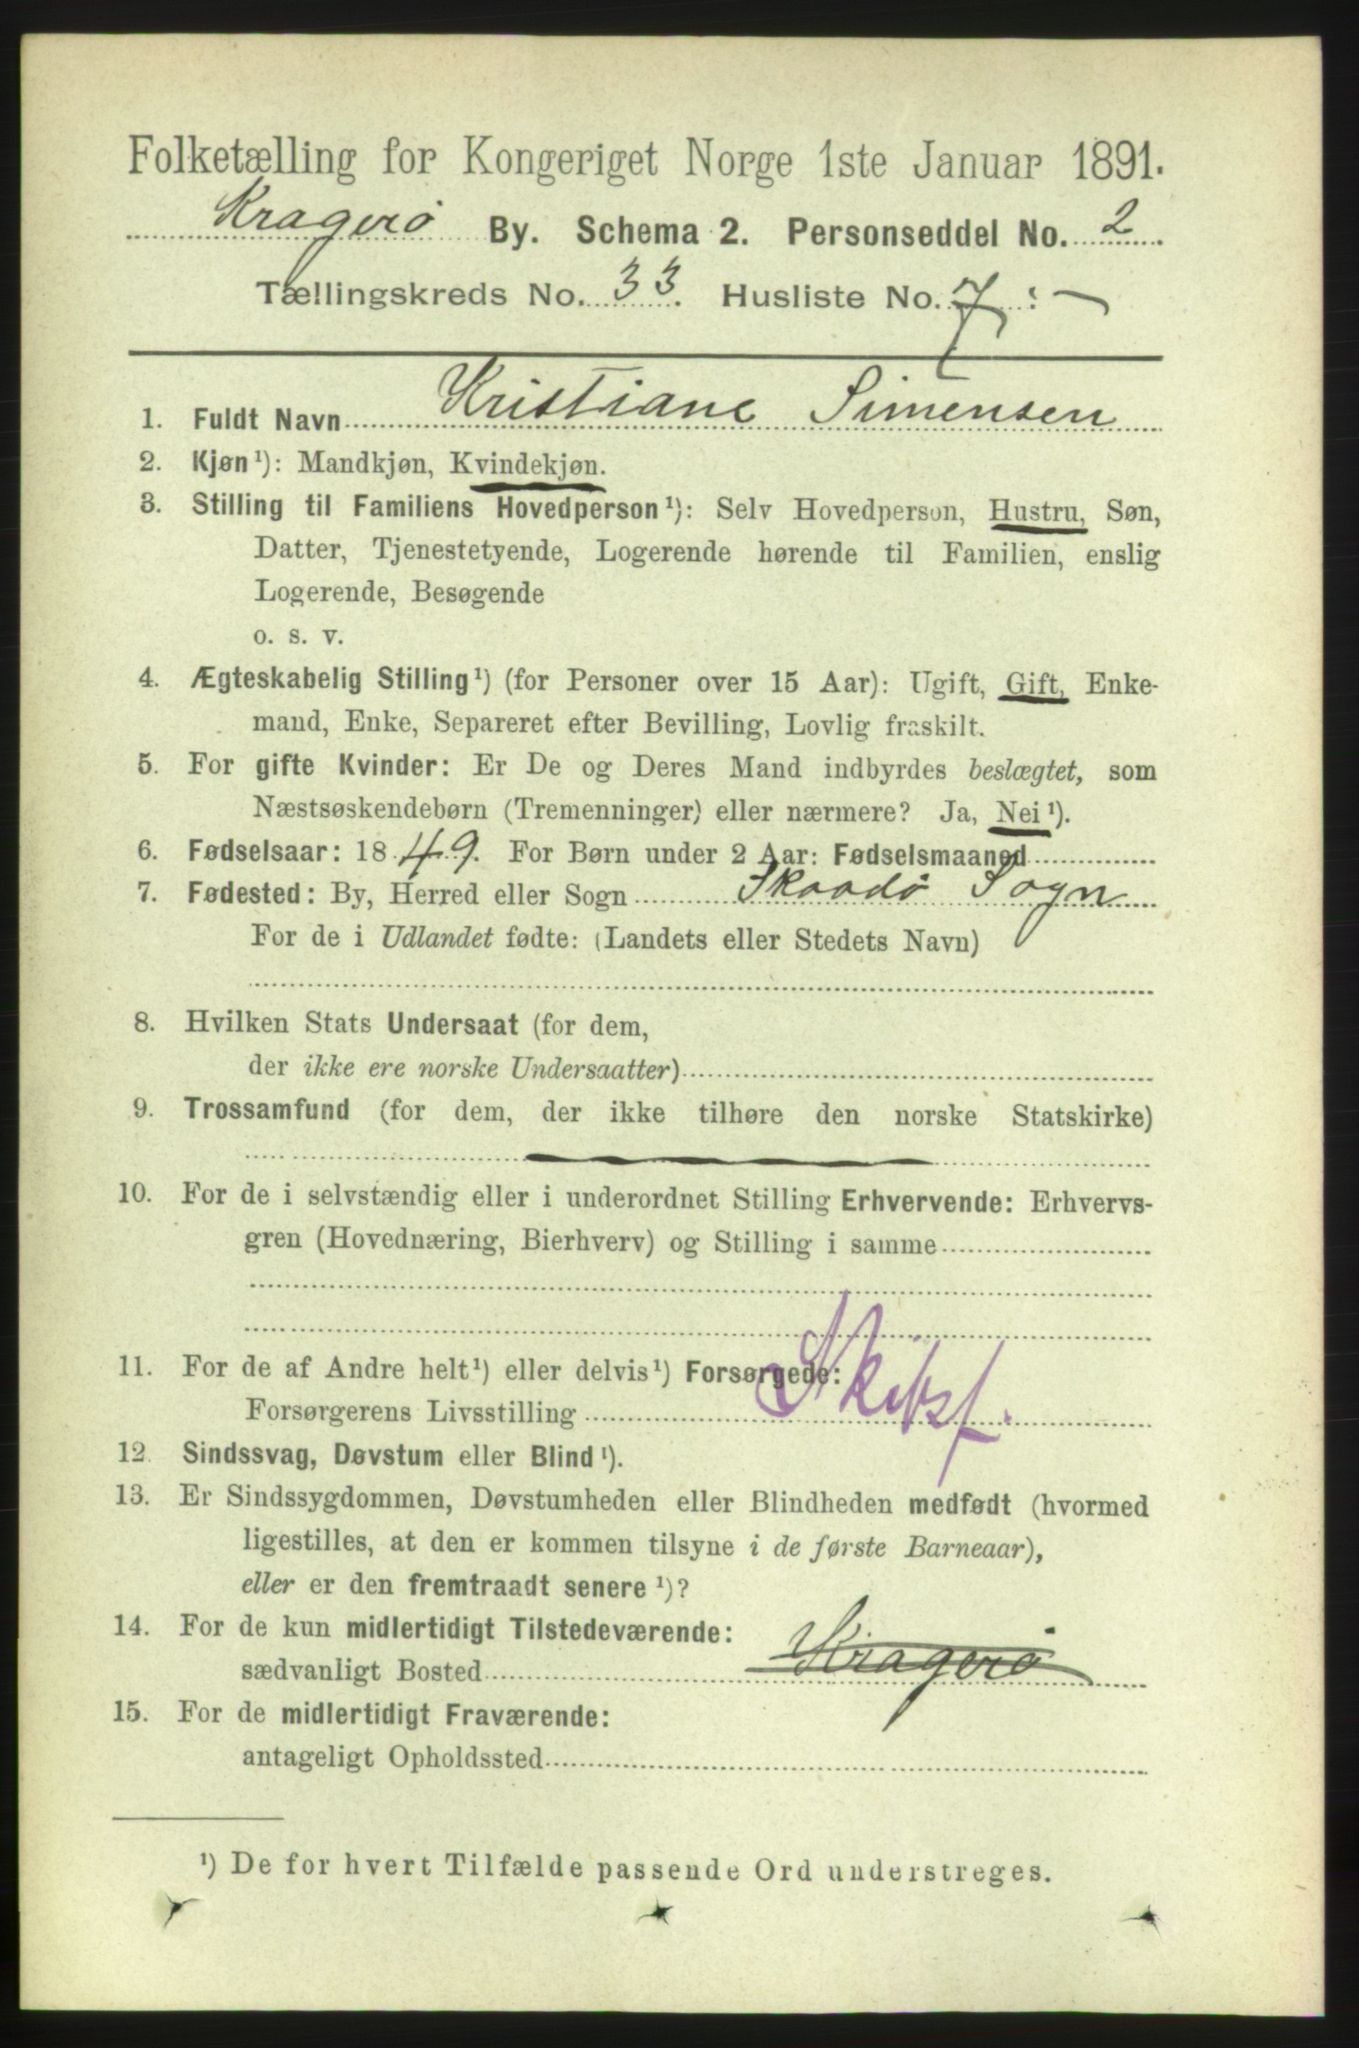 Folketælling for Kongeriget Norge 1ste Januar 1891.
Kragerø By. Schema 2. Personseddel No. 2
Tællingskreds No. 33. Husliste No. 7:
1. Fuldt Navn Kristiane Simensen
2. Kjøn¹): Mandkjøn, Kvindekjøn.
3. Stilling til Familiens Hovedperson¹): Selv Hovedperson, Hustru, Søn,
Datter, Tjenestetyende, Logerende hørende til Familien, enslig
Logerende, Besøgende
o. s. v.
4. Ægteskabelig Stilling¹) (for Personer over 15 Aar): Ugift, Gift, Enke-
mand, Enke, Separeret efter Bevilling, Lovlig fraskilt.
5. For gifte Kvinder: Er De og Deres Mand indbyrdes beslægtet, som
Næstsøskendebørn (Tremenninger) eller nærmere? Ja, Nei¹).
6. Fødselsaar: 1849. For Børn under 2 Aar: Fødselsmaaned
7. Fødested: By, Herred eller Sogn Skaadø Sogn
For de i Udlandet fødte: (Landets eller Stedets Navn)
8. Hvilken Stats Undersaat (for dem,
der ikke ere norske Undersaatter)
9. Trossamfund (for dem, der ikke tilhøre den norske Statskirke)
10. For de i selvstændig eller i underordnet Stilling Erhvervende: Erhvervs-
gren (Hovednæring, Bierhverv) og Stilling i samme
11. For de af Andre helt¹) eller delvis¹) Forsørgede:
Forsørgerens Livsstilling
12. Sindssvag, Døvstum eller Blind¹).
13. Er Sindssygdommen, Døvstumheden eller Blindheden medfødt (hvormed
ligestilles, at den er kommen tilsyne i de første Barneaar),
eller er den fremtraadt senere¹)?
14. For de kun midlertidigt Tilstedeværende:
sædvanligt Bosted Kragerø
15. For de midlertidigt Fraværende:
antageligt Opholdssted
¹) De for hvert Tilfælde passende Ord understreges.